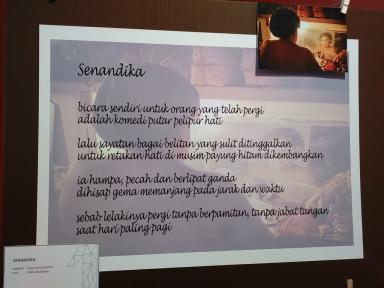 Senandika
bicara sendiri untuk orang yang telah pergi
adalah komedi putar pelipur hati
lalu sayatan bagai belitan yang sulit ditinggalkan
untuk retakan hati di musim payung hitam dikembangkan
ia hampa, pecah dan berlipat ganda
dihisap gema memanjang pada jarak dan waktu
sebab lelakinya pergi tanpa berpamitan, tanpa jabat tangan
saat hari paling pagi
SENANDIKA